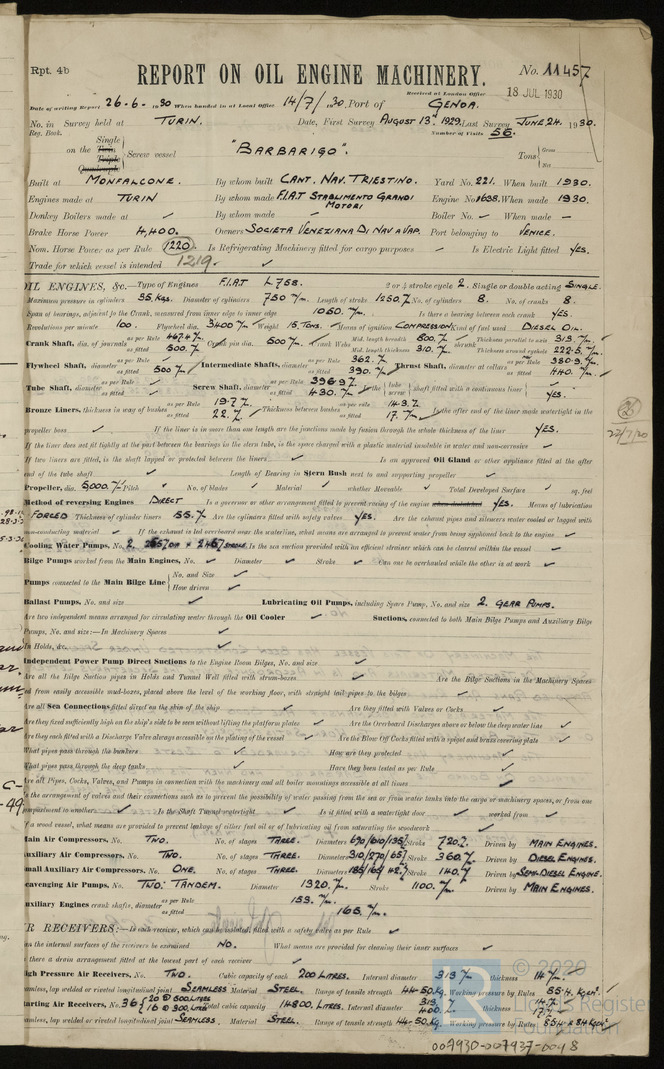 Rpt. 4b
REPORT ON OIL ENGINE MACHINERY.
No. 11457
Received at London Office 18 JUL 1930
Date of writing Report 26-6-1930 When handed in at Local Office 14/7/1930. Port of GENOA.
No. in Survey held at TURIN. Date, First Survey AUGUST 13th 1929. Last Survey JUNE 24. 1930.
Reg. Book. Number of Visits 56.
Single
on the Twin Triple Quadruple Screw vessel "BARBARIGO". Tons Gross Net
Built at MONFALCONE. By whom built CANT. NAV. TRIESTINO. Yard No. 221. When built 1930.
Engines made at TURIN By whom made F.I.A.T STABLIMENTO GRANDI MOTORI Engine No. 1638. When made 1930.
Donkey Boilers made at ✓ By whom made ✓ Boiler No. ✓ When made —
Brake Horse Power 4,400. Owners SOCIETA VENEZIANA DI NAV A VAP. Port belonging to VENICE.
Nom. Horse Power as per Rule 1220 Is Refrigerating Machinery fitted for cargo purposes — Is Electric Light fitted YES.
Trade for which vessel is intended 1219. ✓
OIL ENGINES, &c.—Type of Engines F.I.A.T L 758. 2 or 4 stroke cycle 2. Single or double acting SINGLE.
Maximum pressure in cylinders 35 Kgs. Diameter of cylinders 750 m/m. Length of stroke 1250 m/m. No. of cylinders 8. No. of cranks 8.
Span of bearings, adjacent to the Crank, measured from inner edge to inner edge 1050 m/m. Is there a bearing between each crank YES.
Revolutions per minute 100. Flywheel dia. 3400 m/m Weight 15 TONS. Means of ignition COMPRESSION Kind of fuel used DIESEL OIL.
Crank Shaft, dia. of journals as per Rule 467.4 m/m as fitted 500 m/m. Crank pin dia. 500 m/m. Crank Webs Mid. length breadth 800 m/m. Mid. length thickness 310 m/m. shrunk Thickness parallel to axis 313 m/m. Thickness around eyehole 222.5 m/m.
Flywheel Shaft, diameter as per Rule as fitted 500 m/m Intermediate Shafts, diameter as per Rule 362 m/m. as fitted 390 m/m. Thrust Shaft, diameter at collars as per Rule 380.9 m/m. as fitted 440 m/m.
Tube Shaft, diameter as per Rule as fitted ✓ Screw Shaft, diameter as per Rule 396.9 m/m as fitted 430 m/m. Is the shaft fitted with a continuous liner YES.
Bronze Liners, thickness in way of bushes as per Rule 19.7 m/m as fitted 22 m/m. Thickness between bushes as per rule 14.9 m/m as fitted 17 m/m. Is the after end of the liner made watertight in the
propeller boss ✓ If the liner is in more than one length are the junctions made by fusion through the whole thickness of the liner YES.
If the liner does not fit tightly at the part between the bearings in the stern tube, is the space charged with a plastic material insoluble in water and non-corrosive ✓
If two liners are fitted, is the shaft lapped or protected between the liners ✓ Is an approved Oil Gland or other appliance fitted at the after
end of the tube shaft ✓ Length of Bearing in Stern Bush next to and supporting propeller ✓
Propeller, dia. 5000 m/m Pitch ✓ No. of blades ✓ Material ✓ whether Moveable ✓ Total Developed Surface ✓ sq. feet
Method of reversing Engines DIRECT Is a governor or other arrangement fitted to prevent racing of the engine YES. Means of lubrication
FORCED Thickness of cylinder liners 55 m/m. Are the cylinders fitted with safety valves YES. Are the exhaust pipes and silencers water cooled or lagged with
non-conducting material ✓ If the exhaust is led overboard near the waterline, what means are arranged to prevent water from being syphoned back to the engine ✓
Cooling Water Pumps, No. 2. Is the sea suction provided with an efficient strainer which can be cleared within the vessel ✓
Bilge Pumps worked from the Main Engines, No. ✓ Diameter ✓ Stroke ✓ Can one be overhauled while the other is at work ✓
Pumps connected to the Main Bilge Line No. and Size ✓ How driven ✓
Ballast Pumps, No. and size ✓ Lubricating Oil Pumps, including Spare Pump, No. and size 2. GEAR PUMPS.
Are two independent means arranged for circulating water through the Oil Cooler ✓ Suctions, connected to both Main Bilge Pumps and Auxiliary Bilge
Pumps, No. and size:—In Machinery Spaces ✓
In Holds, &c. ✓
Independent Power Pump Direct Suctions to the Engine Room Bilges, No. and size ✓
Are all the Bilge Suction pipes in Holds and Tunnel Well fitted with strum-boxes ✓ Are the Bilge Suctions in the Machinery Spaces
led from easily accessible mud-boxes, placed above the level of the working floor, with straight tail pipes to the bilges ✓
Are all Sea Connections fitted direct on the skin of the ship ✓ Are they fitted with Valves or Cocks ✓
Are they fixed sufficiently high on the ship's side to be seen without lifting the platform plates ✓ Are the Overboard Discharges above or below the deep water line ✓
Are they each fitted with a Discharge Valve always accessible on the plating of the vessel ✓ Are the Blow Off Cocks fitted with a spigot and brass covering plate ✓
What pipes pass through the bunkers ✓ How are they protected ✓
What pipes pass through the deep tanks ✓ Have they been tested as per Rule ✓
Are all Pipes, Cocks, Valves, and Pumps in connection with the machinery and all boiler mountings accessible at all times ✓
Is the arrangement of valves and their connections such as to prevent the possibility of water passing from the sea or from water tanks into the cargo or machinery spaces, or from one
compartment to another ✓ Is the Shaft Tunnel watertight ✓ Is it fitted with a watertight door ✓ worked from ✓
If a wood vessel, what means are provided to prevent leakage of either fuel oil or of lubricating oil from saturating the woodwork ✓
Main Air Compressors, No. TWO. No. of stages THREE. Diameters 670/610/135 Stroke 720 m/m. Driven by MAIN ENGINES.
Auxiliary Air Compressors, No. TWO. No. of stages THREE. Diameters 310/270/65 Stroke 360 m/m. Driven by DIESEL ENGINES.
Small Auxiliary Air Compressors, No. ONE. No. of stages THREE. Diameters 185/165/42 Stroke 140 m/m Driven by SEMI-DIESEL ENGINE.
Scavenging Air Pumps, No. TWO: TANDEM. Diameter 1320 m/m. Stroke 1100 m/m. Driven by MAIN ENGINES.
Auxiliary Engines crank shafts, diameter as per Rule 153 m/m. as fitted 165 m/m.
AIR RECEIVERS:—Is each receiver, which can be isolated, fitted with a safety valve as per Rule ✓
Can the internal surfaces of the receivers be examined NO. What means are provided for cleaning their inner surfaces ✓
Is there a drain arrangement fitted at the lowest part of each receiver ✓
High Pressure Air Receivers, No. TWO. Cubic capacity of each 200 LITRES. Internal diameter 313 m/m thickness 14 m/m.
Seamless, lap welded or riveted longitudinal joint SEAMLESS Material STEEL. Range of tensile strength 44-50 Kg. Working pressure by Rules 85.4 Kg/cm²
Starting Air Receivers, No. 36 {20 @ 500 LITRES 16 @ 300 LITRES Total cubic capacity 14800 LITRES. Internal diameter 313 m/m 400 m/m. thickness 14 m/m. 17 m/m
Seamless, lap welded or riveted longitudinal joint SEAMLESS. Material STEEL. Range of tensile strength 44-50 Kg. Working pressure by Rules
© 2020
Lloyd's Register
Foundation
007930-007937-0048